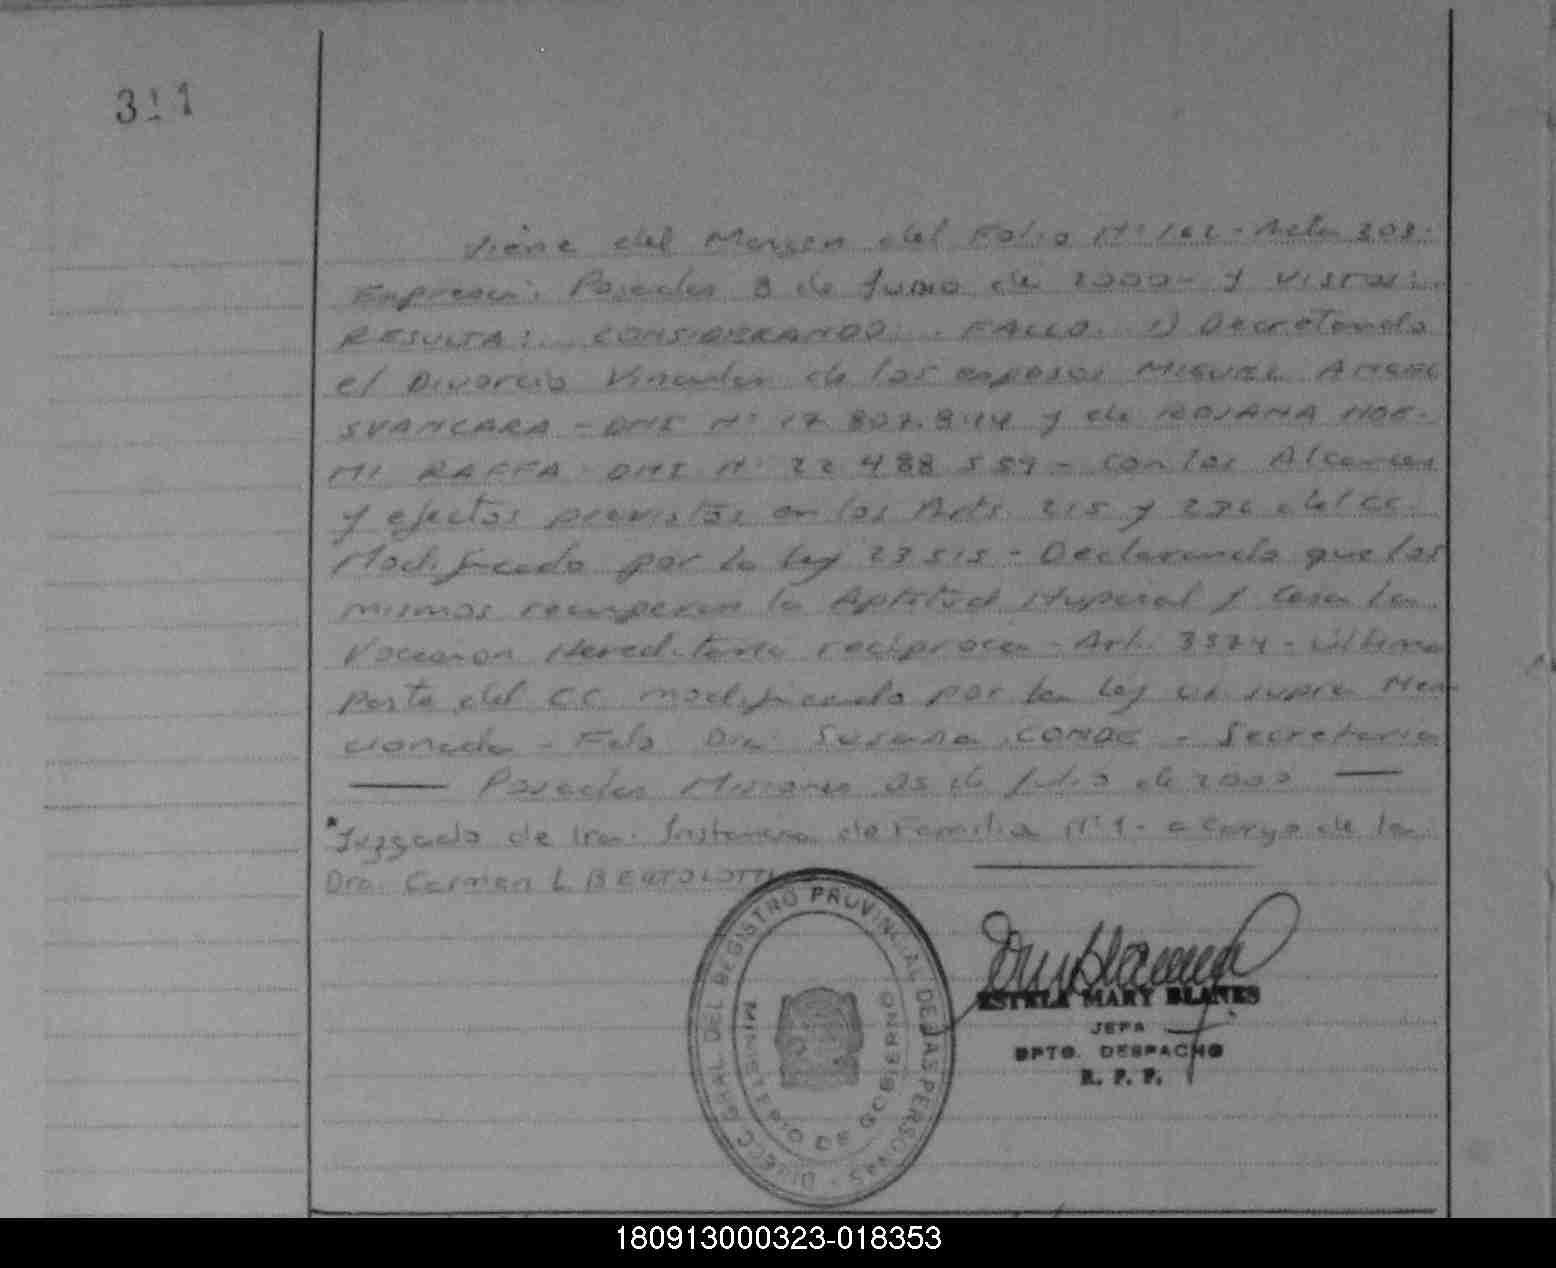 311
Viene del Margen del Folio N: 162 - Acta 308.
Expresa: Posadas 8 de Junio de 2000 - Y VISTOS:..
RESULTA:... CONSIDERANDO... FALLO. 1) Decretando
el Divorcio Vincular de los esposos MIGUEL ANGEL
SVANCARA - DNI N: 17.807. y de ROSANA NOE-
MI RAFFA - DNI N: 22.488.559 - con los Alcances
y efectos previstos en los Arts. 215 y 236 del CC.
Modificado por la ley 23515 - Declarando que los
mismos recuperan la Aptitud Nupcial y Cesa la
Vocacion Hereditaria reciproca - Art. 3574 - última
parte del CC modificado por la ley ut supra Men-
cionada - Fdo Dra Susana CONDE - Secretaria
Posadas Misiones 05 de Julio de 2000
*Juzgado de 1ra. Instancia de Familia N: 1 - a cargo de la
Dra. Carmen L BERTOLOTTI
DIRECC. GRAL. DEL REGISTRO PROVINCIAL DE LAS PERSONAS -
MINISTERIO DE GOBIERNO
ESTELA MARY BLANES
JEFA
DPTO. DESPACHO
R. P. P.
180913000323-018353